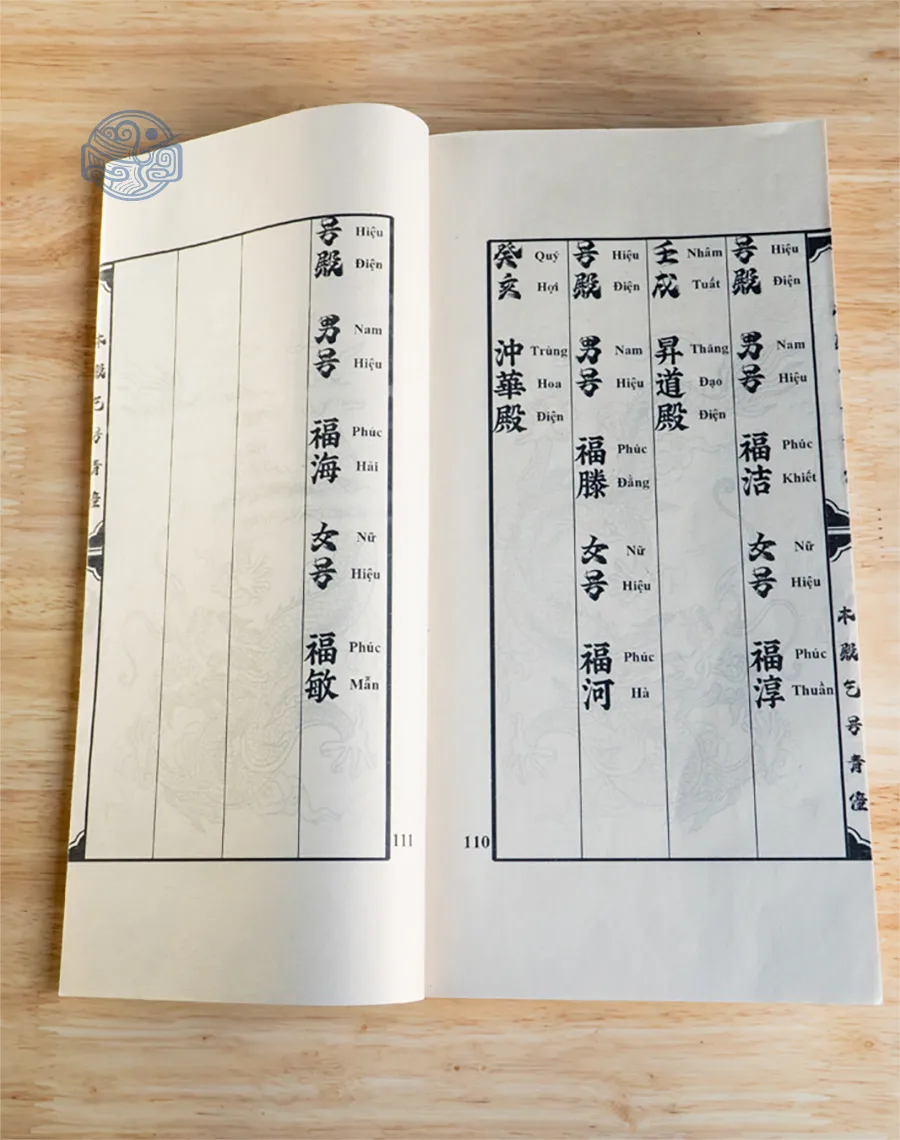 号殿 男号 福洁 女号 福淳
Hiệu Điện Nam Hiệu Phúc Khiết Nữ Hiệu Phúc Thuần
壬戌 昇道殿
Nhâm Tuất Thăng Đạo Điện
号殿 男号 福滕 女号 福河
Hiệu Điện Nam Hiệu Phúc Đằng Nữ Hiệu Phúc Hà
癸亥 沖華殿
Quý Hợi Trùng Hoa Điện
110
号殿 男号 福海 女号 福敏
Hiệu Điện Nam Hiệu Phúc Hải Nữ Hiệu Phúc Mẫn
111